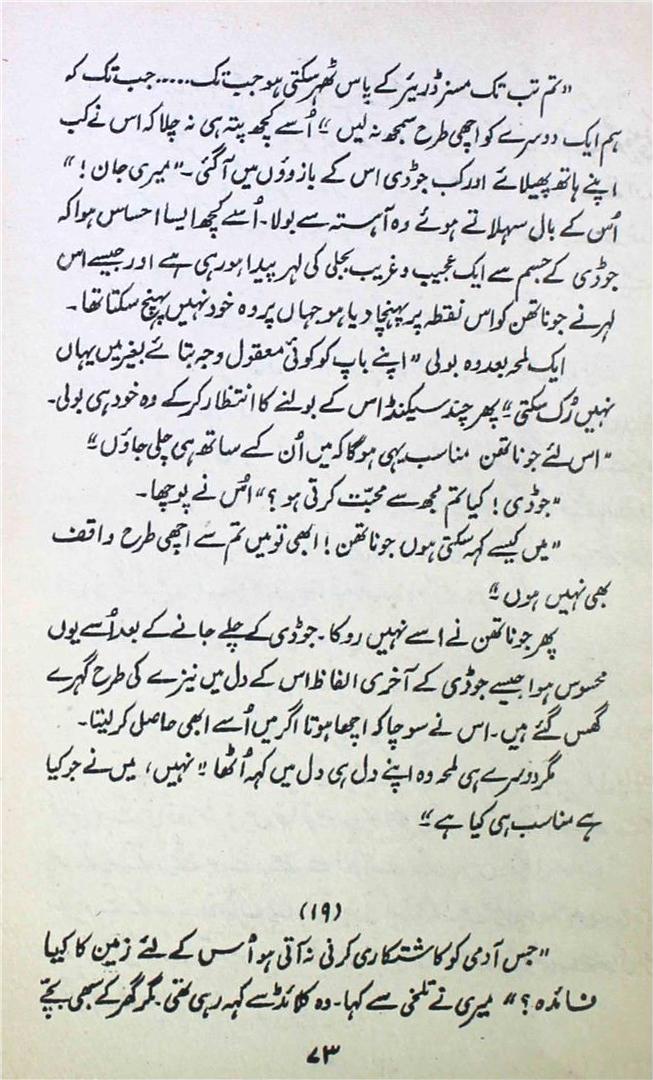 "تم تب تک مسز ڈریئر کے پاس ٹھہر سکتی ہو جب تک ..... جب تک کہ
ہم ایک دوسرے کو اچھی طرح سمجھ نہ لیں ۔" اُسے کچھ پتہ ہی نہ چلا کہ اس نے کب
اپنے ہاتھ پھیلائے اور کب جوڈی اس کے بازوؤں میں آ گئی ۔ "میری جان ! "
اُس کے بال سہلاتے ہوئے وہ آہستہ سے بولا۔ اُسے کچھ ایسا احساس ہوا کہ
جوڈی کے جسم سے ایک عجیب و غریب بجلی کی لہر پیدا ہو رہی ہے اور جیسے اس
لہر نے جوناتھن کو اس نقطہ پر پہنچا دیا ہو جہاں پر وہ خود نہیں پہنچ سکتا تھا ۔
ایک لمحہ بعد وہ بولی "اپنے باپ کو کوئی معقول وجہ بتائے بغیر میں یہاں
نہیں رُک سکتی ۔" پھر چند سیکنڈ اس کے بولنے کا انتظار کر کے وہ خود ہی بولی۔
"اس لئے جوناتھن مناسب یہی ہو گا کہ میں اُن کے ساتھ ہی چلی جاؤں ۔"
"جوڈی ! کیا تم مجھ سے محبّت کرتی ہو ؟" اُس نے پوچھا ۔
"میں کیسے کہہ سکتی ہوں جوناتھن ! ابھی تو میں تم سے اچھی طرح واقف
بھی نہیں ہوں ۔"
پھر جوناتھن نے اسے نہیں روکا ۔ جوڈی کے چلے جانے کے بعد اُسے یوں
محسوس ہوا جیسے جوڈی کے آخری الفاظ اس کے دل میں نیزے کی طرح گہرے
گھس گئے ہیں ۔ اس نے سوچا کہ اچھا ہوتا اگر میں اُسے ابھی حاصل کر لیتا ۔
مگر دوسرے ہی لمحہ وہ اپنے دل ہی دل میں کہہ اُٹھا ۔" نہیں ، میں نے جو کیا
ہے مناسب ہی کیا ہے ۔"
(۱۹)
"جس آدمی کو کاشتکاری کرنی نہ آتی ہو اُس کے لئے زمین کا کیا
فائدہ ؟" میری نے تلخی سے کہا ۔ وہ کلائڈ سے کہہ رہی تھی ۔ مگر گھر کے سبھی بچّے
۷۳